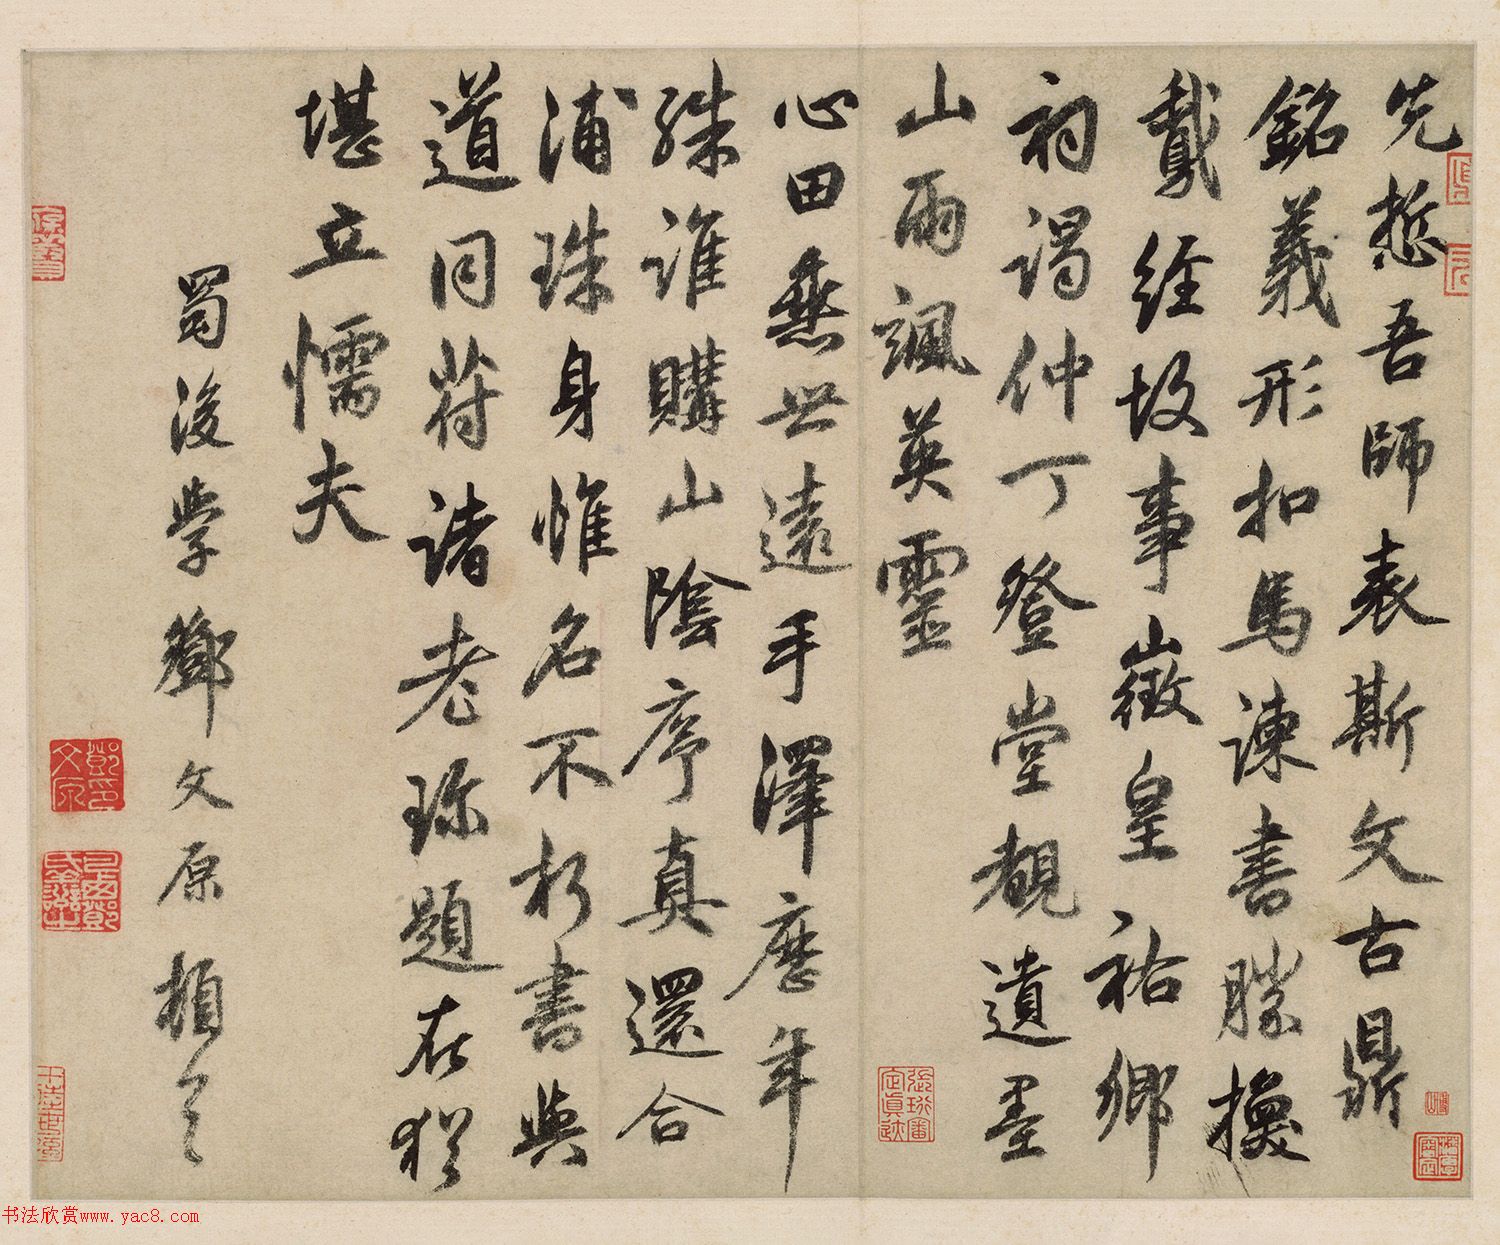 先悊吾師表斯文古鼎
銘義形扣馬諫書勝換
鵞經故事徵皇祐鄉
祠謁仲丁登堂觀遺墨
山雨颯英靈
心田無世遠手澤歷年
殊誰購山陰序真還合
浦珠身惟名不朽書與
道同符諸老珎題在猶
堪立懦夫
蜀後學鄧文原頓首
書法欣赏www.yac8.com